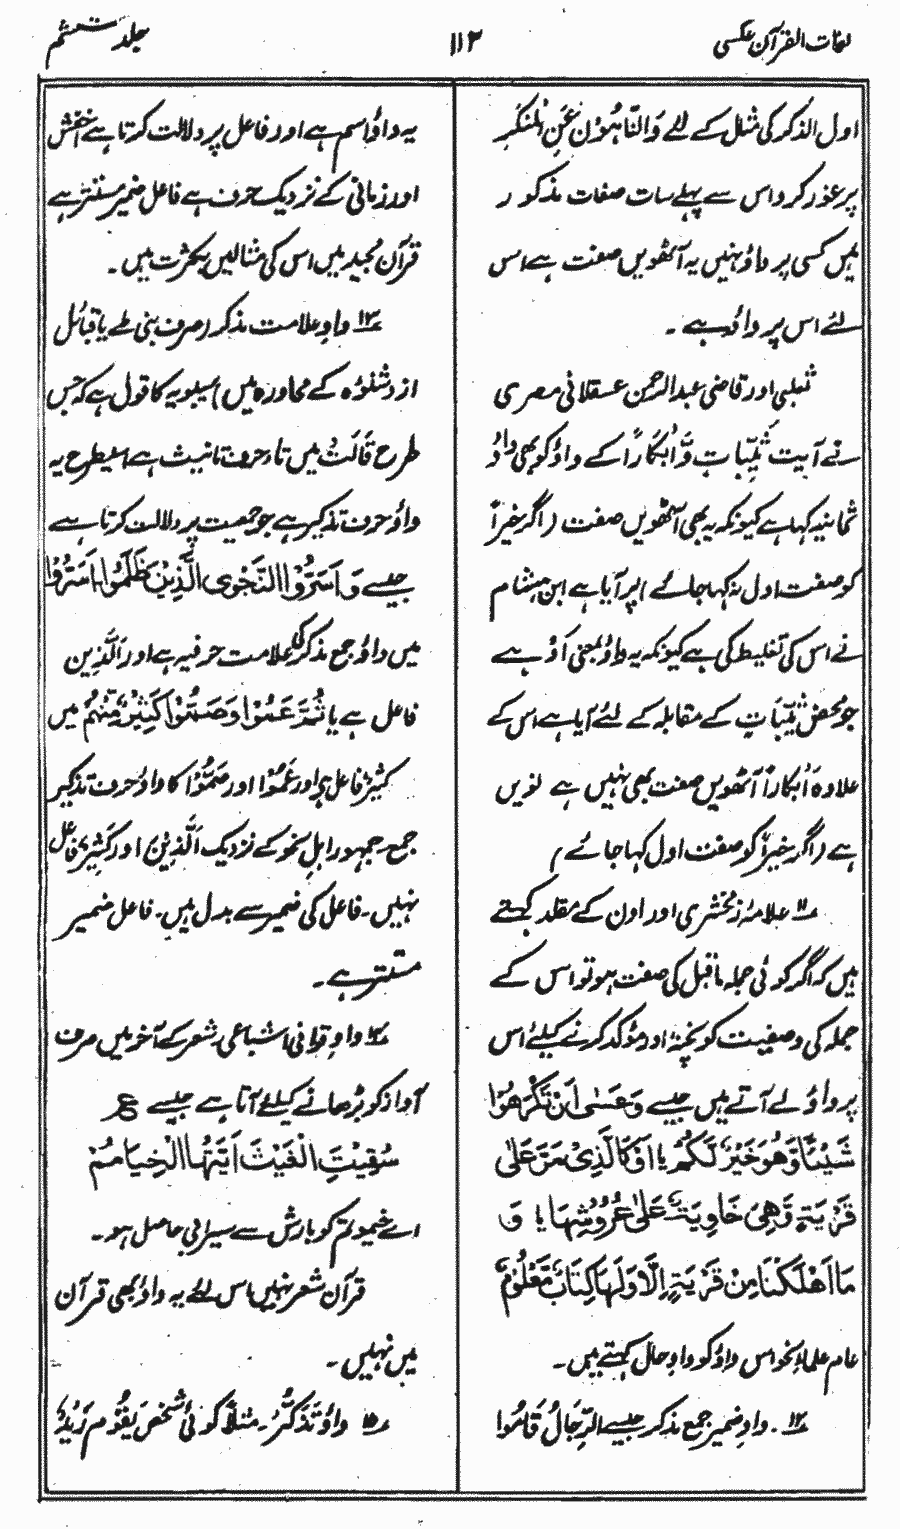 لغات القرآن عکسی
۱۱۲
جلد ششم
اول الذکر کی مثال کے لئے وَالنَّاہُوْنَ عَنِ الْمُنْکَرِ
پر غور کرو اس سے پہلے سات صفات مذکور
ہیں کسی پر واؤ نہیں یہ آٹھویں صفت ہے اس
لئے اس پر واؤ ہے ۔
ثعلبی اور قاضی عبدالرحمن عسقلانی مصری
نے آیت ثَیِّبَاتٍ وَّاَبْکَارًا کے واؤ کو بھی واؤ
ثمانیہ کہا ہے کیونکہ یہ بھی آٹھویں صفت (اگر خیراً
کو صفت اول نہ کہا جائے) پر آیا ہے ابن ہشام
نے اس کی تغلیط کی ہے کیونکہ یہ واؤ بمعنی اَوْ ہے
جو محض ثَیِّبَاتٍ کے مقابلہ کے لئے آیا ہے اس کے
علاوہ اَبْکَاراً آٹھویں صفت بھی نہیں ہے نویں
ہے (اگر خیراً کو صفت اول کہا جائے)
۱۱ علامہ زمخشری اور اون کے مقلد کہتے
ہیں کہ اگر کوئی جملہ ماقبل کی صفت ہو تو اس کے
جملہ کی وصفیت کو پختہ اور مؤکد کرنے کیلئے اس
پر واؤ لے آتے ہیں جیسے وَعَسٰی اَنْ تَکْرَھُوْا
شَیْئًا وَّھُوَ خَیْرٌ لَّکُمْ یا اَوْ کَالَّذِیْ مَرَّ عَلٰی
قَرْیَۃٍ وَّھِیَ خَاوِیَۃٌ عَلٰی عُرُوْشِہَا یا وَ
مَا اَھْلَکْنَا مِنْ قَرْیَۃٍ اِلَّا وَلَہَا کِتَابٌ مَّعْلُوْمٌ
عام علماءِ نحو اس واؤ کو واوِ حال کہتے ہیں۔
۱۲ ۔ واوِ ضمیر جمع مذکر جیسے الرِّجَالُ قَامُوْا
یہ واؤ اسم ہے اور فاعل پر دلالت کرتا ہے اخفش
اور زمانی کے نزدیک حرف ہے فاعل ضمیر مستتر ہے
قرآن مجید میں اس کی مثالیں بکثرت ہیں ۔
۱۳ واوِ علامت مذکر (صرف بنی طے یا قبائل
ازدشنوءہ کے محاورہ میں) سیبویہ کا قول ہے کہ جس
طرح قَالَتْ میں تاء حرف تانیث ہے اسیطرح یہ
واؤ حرف تذکیر ہے جو جمعیت پر دلالت کرتا ہے
جیسے وَاَسَرُّوا النَّجْوَی الَّذِیْنَ ظَلَمُوْا اَسَرُّوْا
میں واؤ جمع مذکر کی علامت حرفیہ ہے اور اَلَّذِیْنَ
فاعل ہے یا ثُمَّ عَمُوْا وَصَمُّوْا کَثِیْرٌ مِّنْہُمْ میں
کثیرٌ فاعل ہے اور عَمُوْا اور صَمُّوْا کا واؤ حرف تذکیر
جمع۔ جمہور اہلِ نحو کے نزدیک اَلَّذِیْنَ اور کَثِیْرٌ فاعل
نہیں۔ فاعل کی ضمیر سے بدل ہیں۔ فاعل ضمیر
مستتر ہے ۔
۱۴ واوِ قوافی اشباعی شعر کے آخر میں صرف
آواز کو بڑھانے کیلئے آتا ہے جیسے ع
سُقِیْتِ الْغَیْثَ اَیَّتُہَا الْخِیَامُمْ
اے خیمو تم کو بارش سے سیرابی حاصل ہو ۔
قرآن شعر نہیں اس لئے یہ واؤ بھی قرآن
میں نہیں ۔
۱۵ واؤ تَذَکُّرْ۔ مثلاً کوئی شخص یَقُوْمُ زَیْدٌ